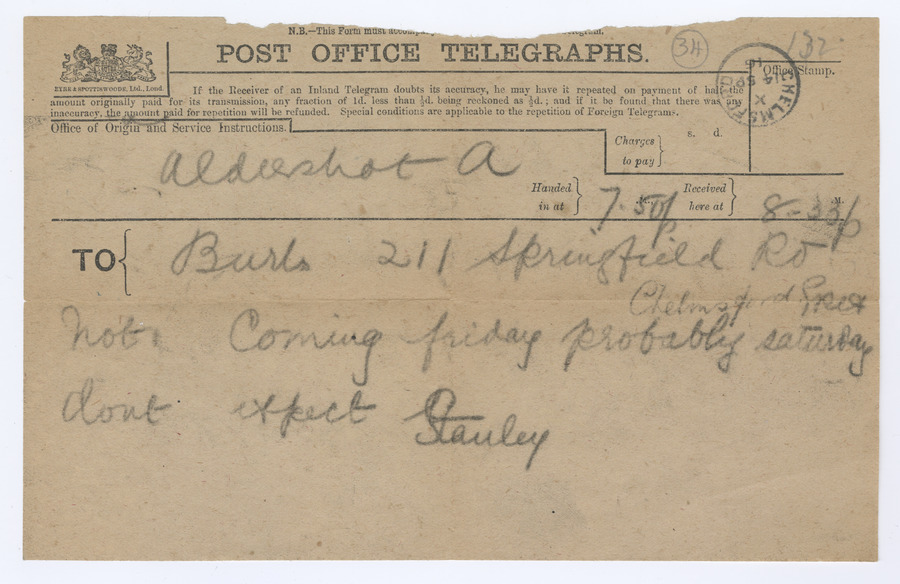 N.B.—This Form must accompany
POST OFFICE TELEGRAPHS.
34
132
EYRE & SPOTTISWOODE, Ltd., Lond.
Office Stamp.
CHELMSFORD
X
14 SP
15
If the Receiver of an Inland Telegram doubts its accuracy, he may have it repeated on payment of half the
amount originally paid for its transmission, any fraction of 1d. less than ½d. being reckoned as ½d.; and if it be found that there was any
inaccuracy, the amount paid for repetition will be refunded. Special conditions are applicable to the repetition of Foreign Telegrams.
Office of Origin and Service Instructions.
Aldershot A
Charges to pay
s. d.
Handed in at
7.50p
M.
Received here at
8-33p
M.
TO
Burls 211 Springfield Rd
Chelmsford
Not Coming friday probably saturday
dont expect Stanley